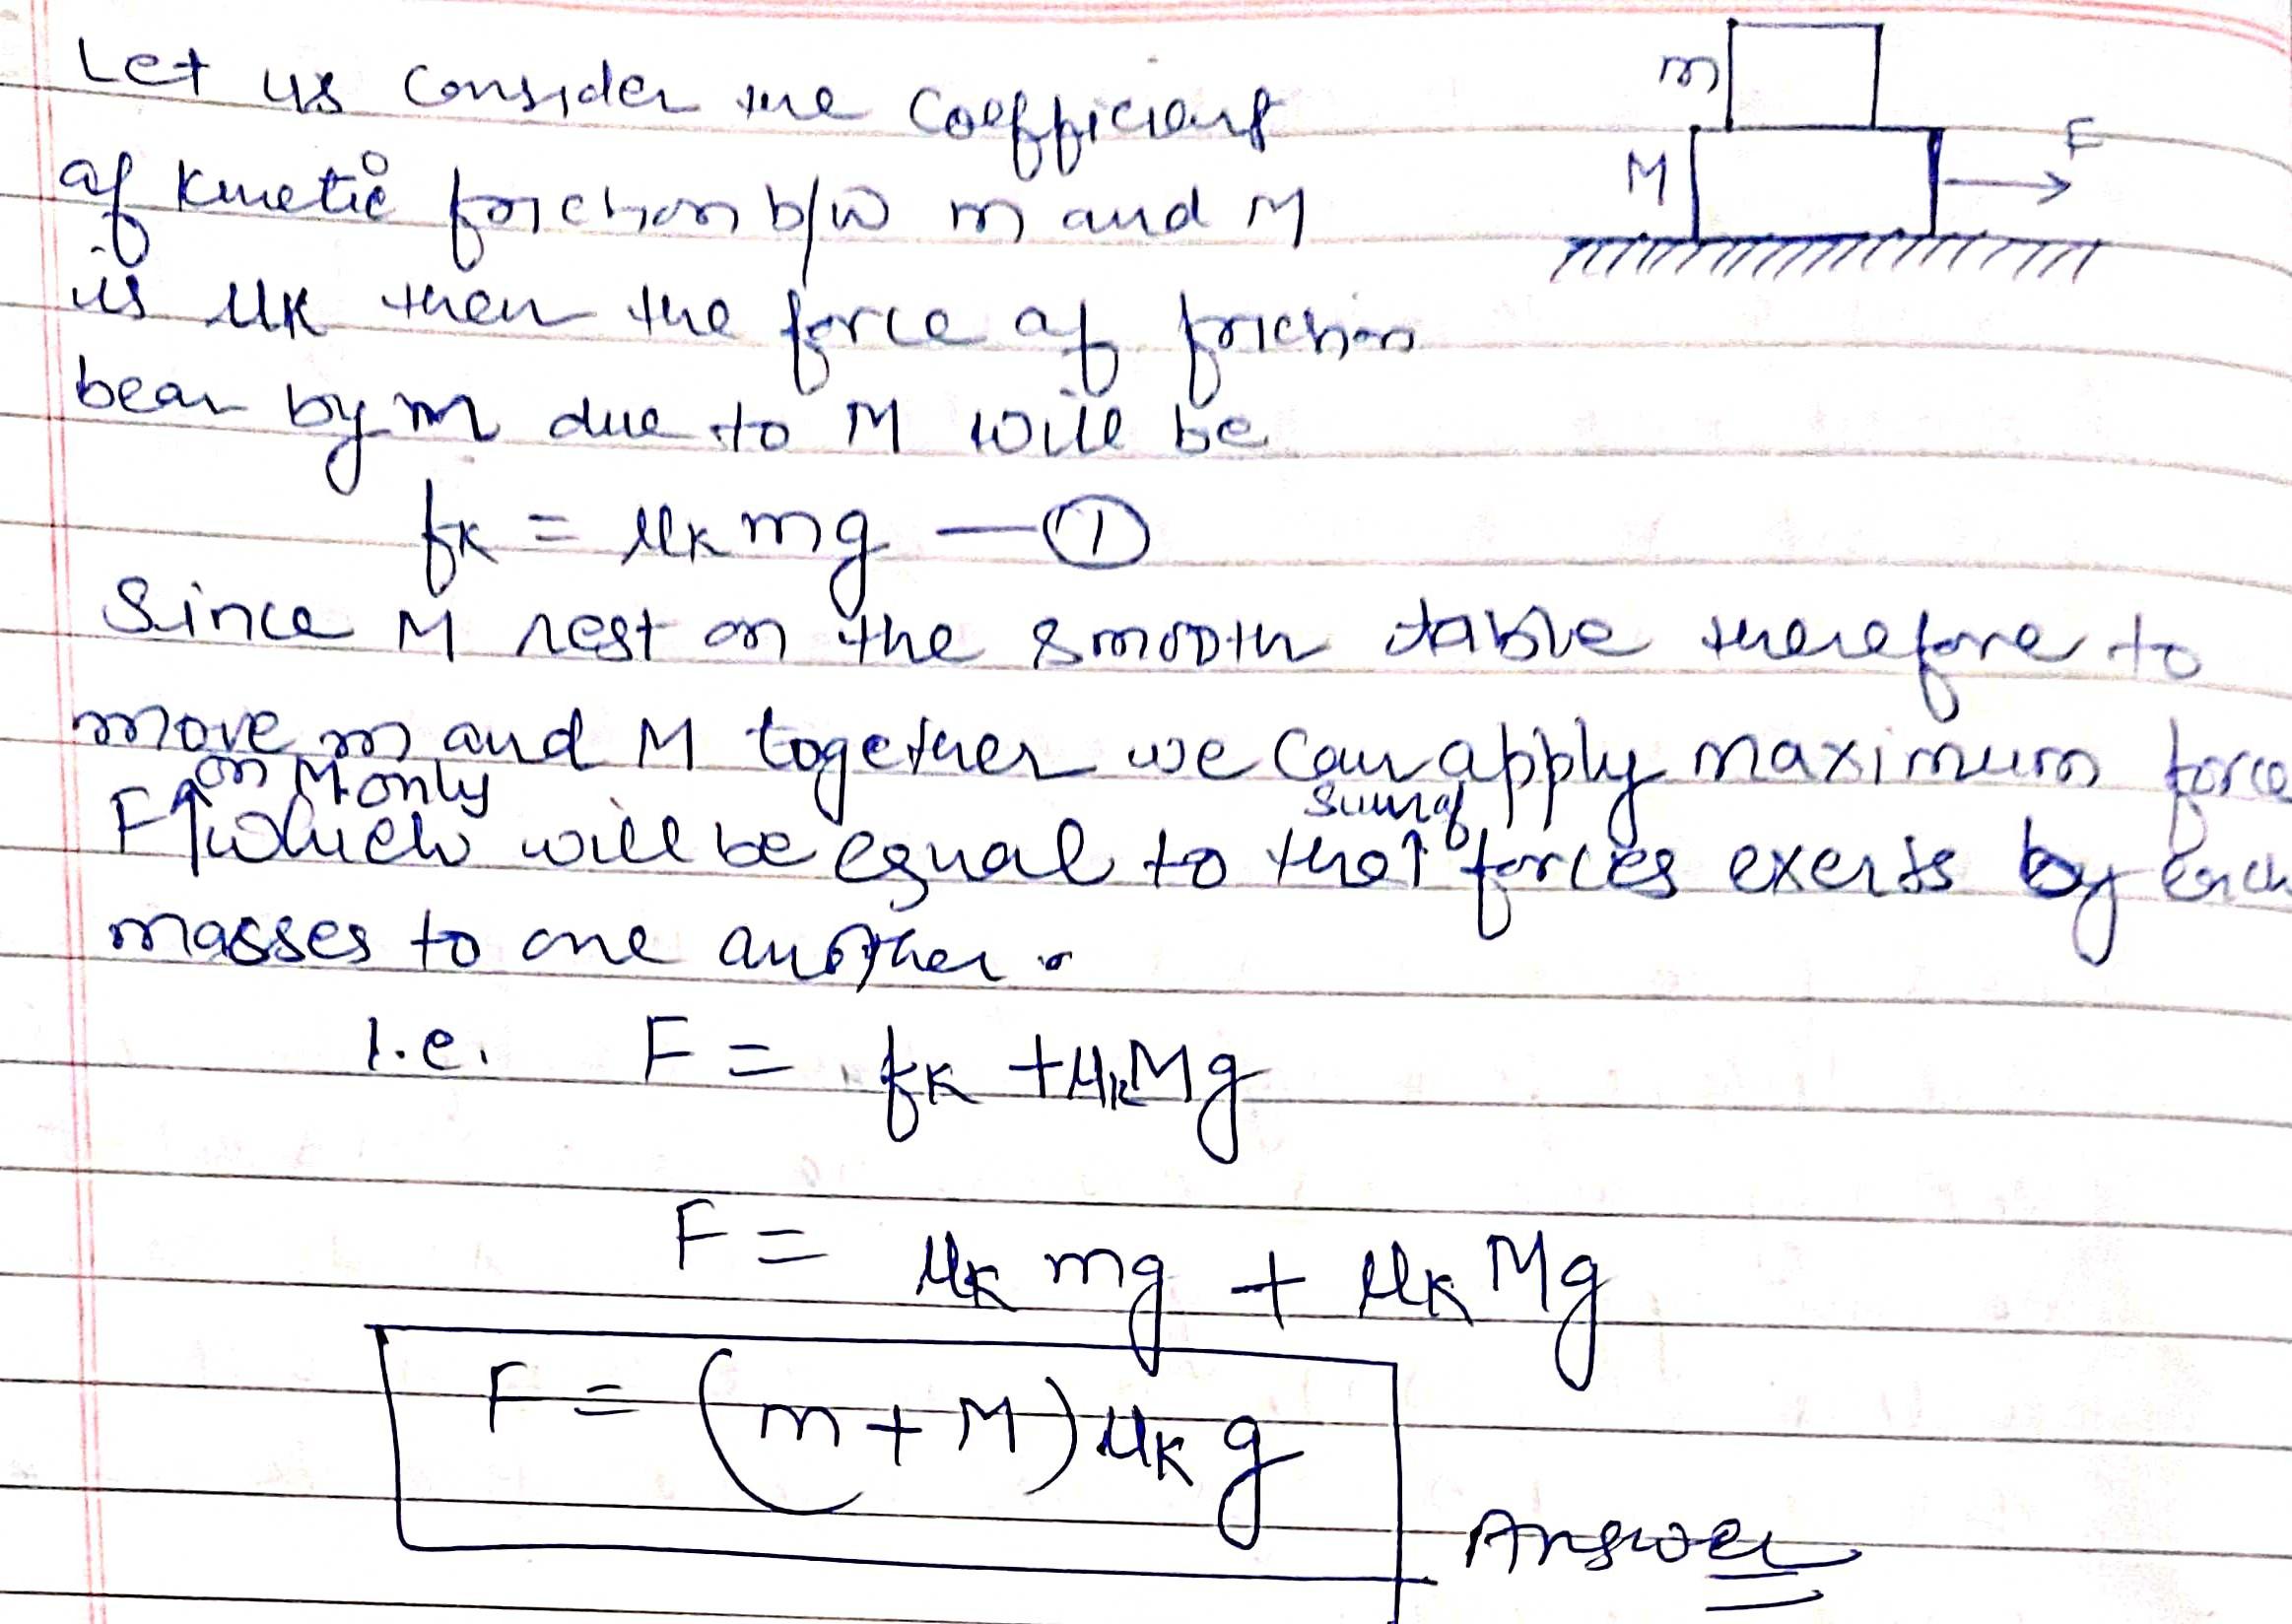 Let us consider the coefficient
of kinetic friction b/w m and M
is μK then the force of friction
bear by m due to M will be
fK = μK mg — ①
Since M rest on the smooth table therefore to
move m and M together we can apply maximum force
F ↑ on M only which will be equal to the ↑ sum of forces exerts by each
masses to one another.
I.e. F = fK + μKMg
F = μK mg + μK Mg
F = (m + M) μK g
Answer
m
M
F